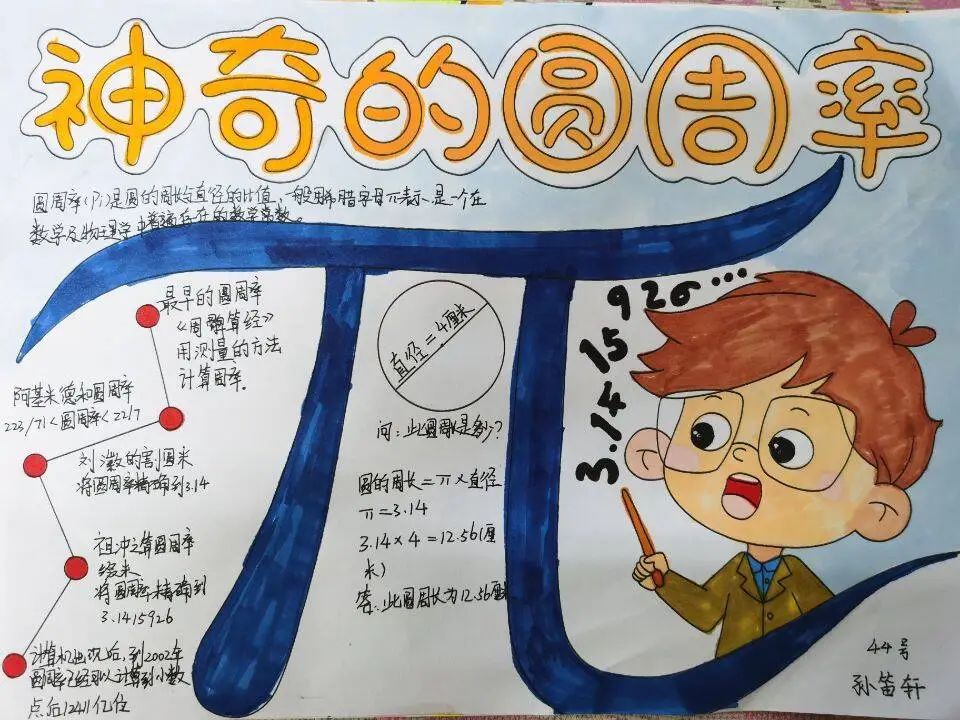 神奇的圆周率
圆周率(Pi)是圆的周长与直径的比值,一般用希腊字母π表示,是一个在
数学及物理学中普遍存在的数学常数。
最早的圆周率
《周髀算经》
用测量的方法
计算圆周率.
阿基米德和圆周率
223/71<圆周率<22/7
刘徽的割圆术
将圆周率精确到3.14
祖冲之算圆周率
将圆周率精确到
3.1415926
计算机出现后,到2002年
圆周率已经可以计算到小数
点后12411亿位
直径=4厘米
问:此圆周长是多少?
圆的周长=π×直径
π=3.14
3.14×4=12.56(厘
米)
答:此圆周长为12.56厘米
π
3.1415926...
44号
孙笛轩